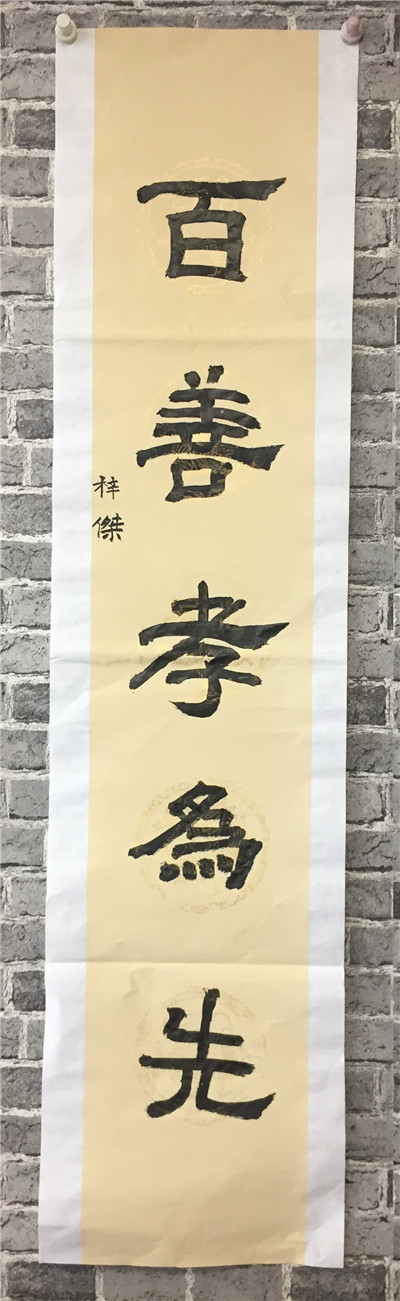 百善孝為先
梓傑